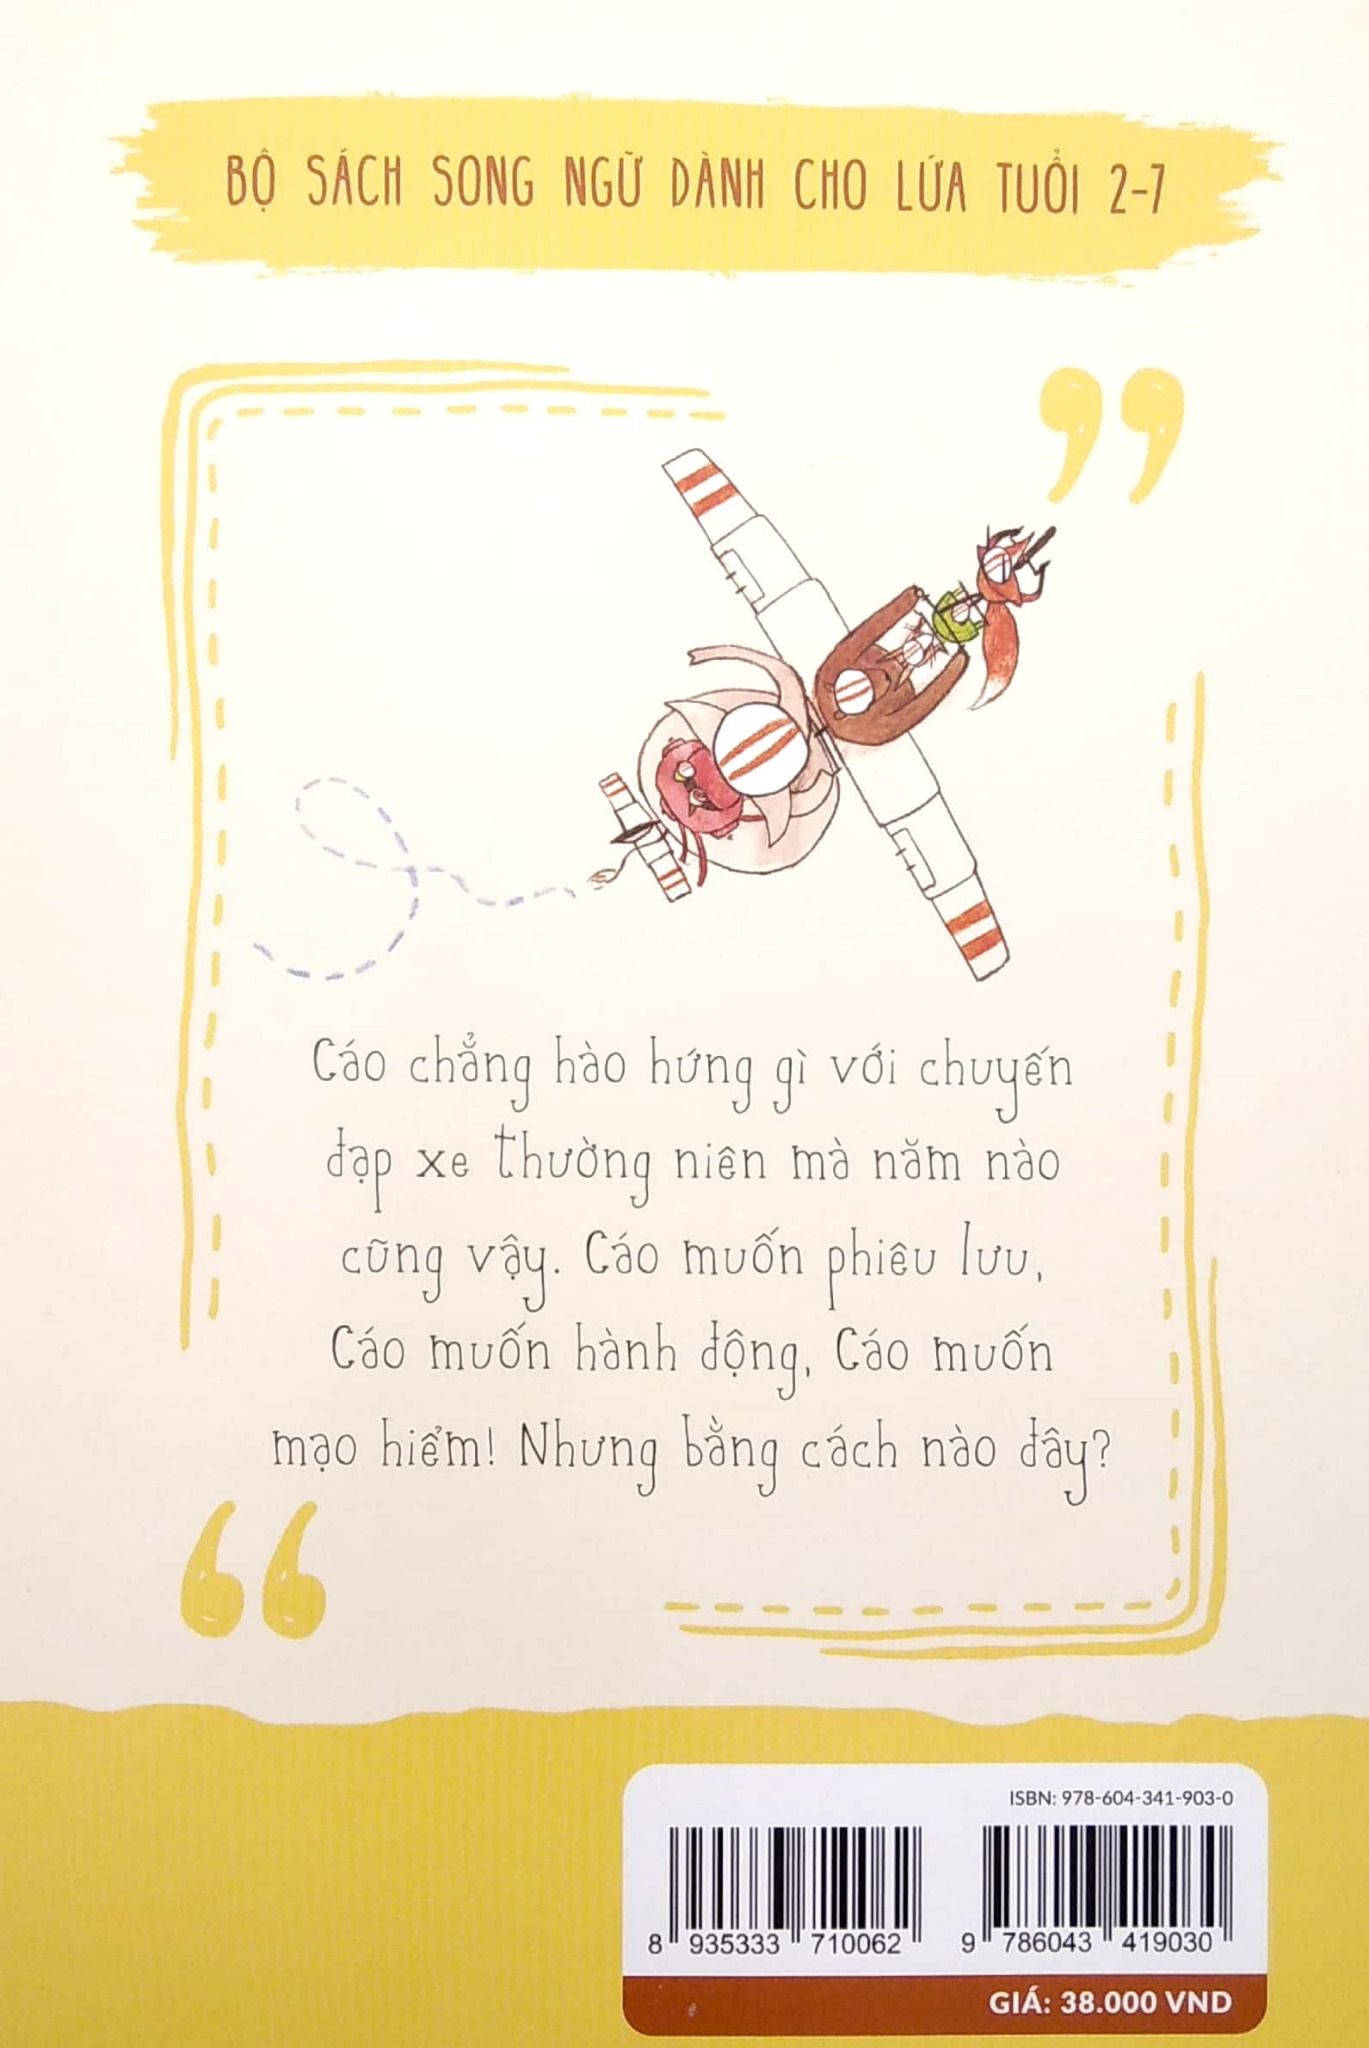 BỘ SÁCH SONG NGỮ DÀNH CHO LỨA TUỔI 2-7
Cáo chẳng hào hứng gì với chuyến
đạp xe thường niên mà năm nào
cũng vậy. Cáo muốn phiêu lưu,
Cáo muốn hành động, Cáo muốn
mạo hiểm! Nhưng bằng cách nào đây?
ISBN: 978-604-341-903-0
8 935333 710062
9 786043 419030
GIÁ: 38.000 VND